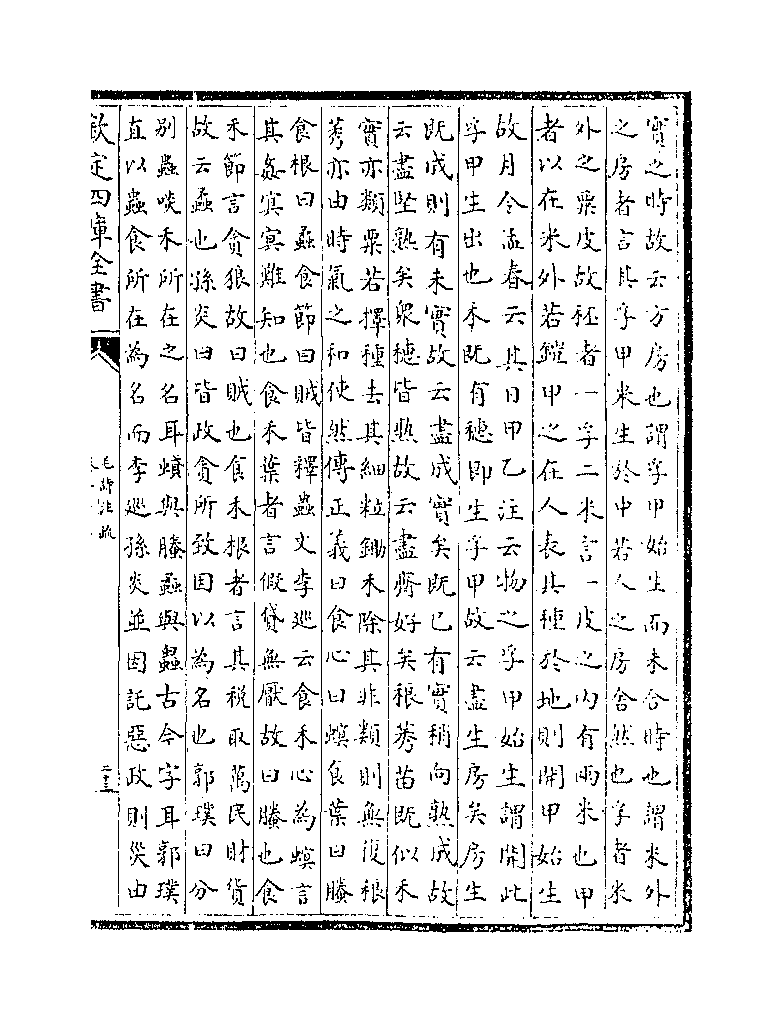 實之時故云方房也謂孚甲始生而未合時也謂米外
之房者言其孚甲米生於中若人之房舍然也孚者米
外之粟皮故秠者一孚二米言一皮之内有兩米也甲
者以在米外若鎧甲之在人表其種於地則開甲始生
故月令孟春云其日甲乙注云物之孚甲始生謂開此
孚甲生出也本既有穗即生孚甲故云盡生房矣房生
既成則有未實故云盡成實矣既已有實稍向熟成故
云盡堅熟矣衆穗皆熟故云盡齊好矣稂莠苗既似禾
實亦類粟若擇種去其細粒鋤禾除其非類則無復稂
莠亦由時氣之和使然傳正義曰食心曰螟食葉曰螣
食根曰蟊食節曰賊皆釋蟲文李廵云食禾心為螟言
其姦冥冥難知也食禾葉者言假貸無厭故曰螣也食
禾節言貪狼故曰賊也食禾根者言其税取萬民財貨
故云蟊也孫炎曰皆政貪所致因以為名也郭璞曰分
别蟲啖禾所在之名耳螟與螣蟊與蟲古今字耳郭璞
直以蟲食所在為名而李廵孫炎並因託惡政則災由
欽定四庫全書
毛詩注疏
二十三